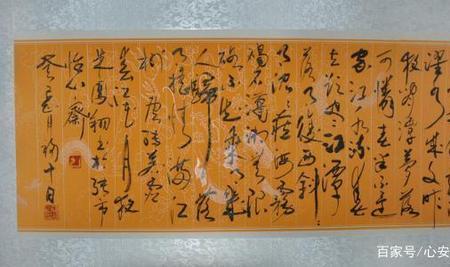 水成文昨
夜闲潭梦落
可怜春半不还
家江水流春
去欲尽江潭
落月复西斜
月沉沉藏海雾
碣石潇湘无限
路不知乘月几
人归落
月摇情满江
树 唐张若虚
春江花月夜
凤翔书于张市
怡心斋
癸巳年 月初十日
百家号/心安